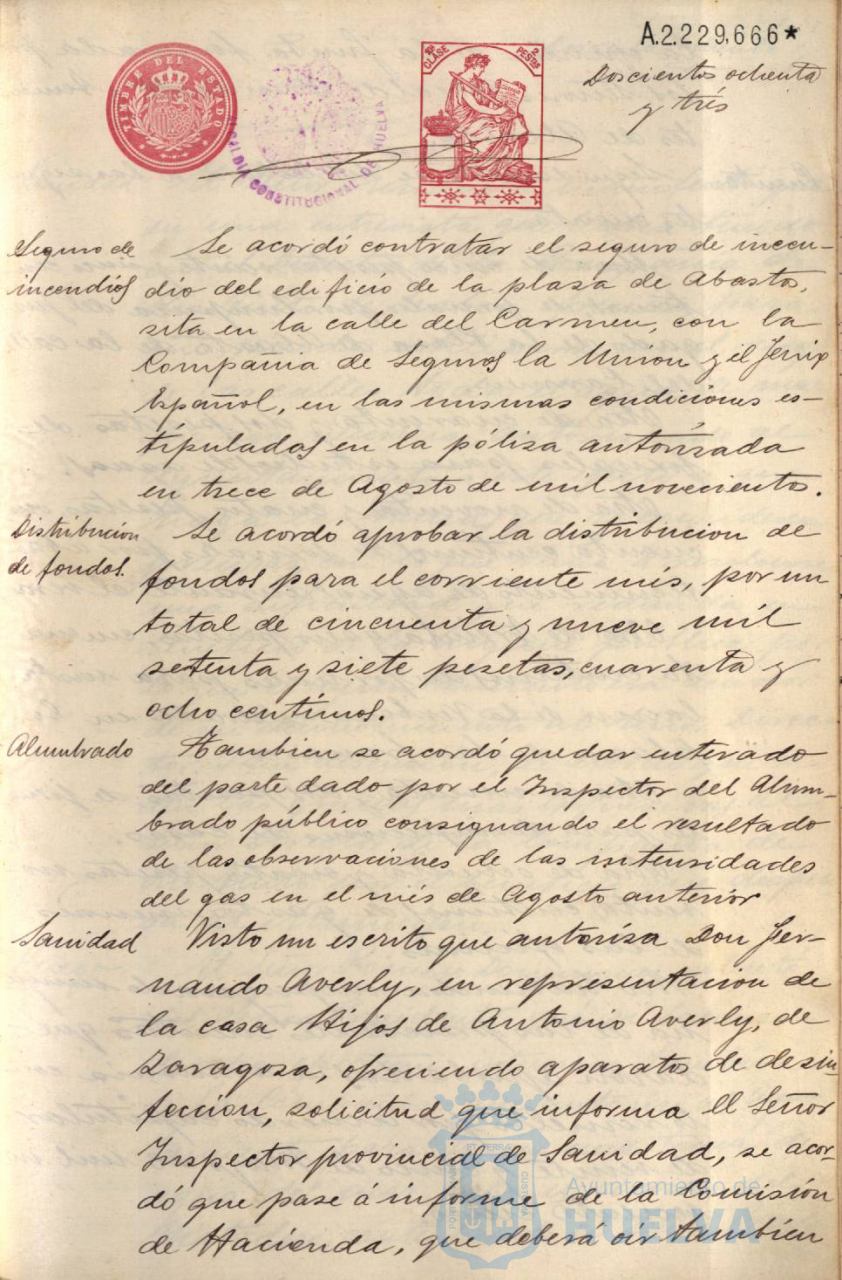 A.2.229,666*
Doscientos ochenta
y trés
TIMBRE DEL ESTADO
ALCALDIA CONSTITUCIONAL DE HUELVA
CLASE
2 PESETAS
Seguro de
incendios
Se acordó contratar el seguro de incen-
dio del edificio de la plaza de Abastos,
sita en la calle del Carmen, con la
Compañia de Seguros la Union y el Fenix
Español, en las mismas condiciones es-
tipulados en la póliza autorizada
en trece de Agosto de mil novecientos.
Distribucion
de fondos.
Se acordó aprobar la distribucion de
fondos para el corriente més, por un
total de cincuenta y nueve mil
setenta y siete pesetas, cuarenta y
ocho centimos.
Alumbrado
Tambien se acordó quedar enterado
del parte dado por el Inspector del Alum-
brado público consignando el resultado
de las observaciones de las intensidades
del gas en el més de Agosto anterior
Sanidad
Visto un escrito que autoriza Don Fer-
nando Averly, en representacion de
la casa Hijos de Antonio Averly, de
Zaragoza, ofreciendo aparatos de desin-
feccion, solicitud que informa el Señor
Inspector provincial de Sanidad, se acor-
dó que pase á informe de la Comisión
de Hacienda, que deberá oir tambien
Ayuntamiento de
HUELVA